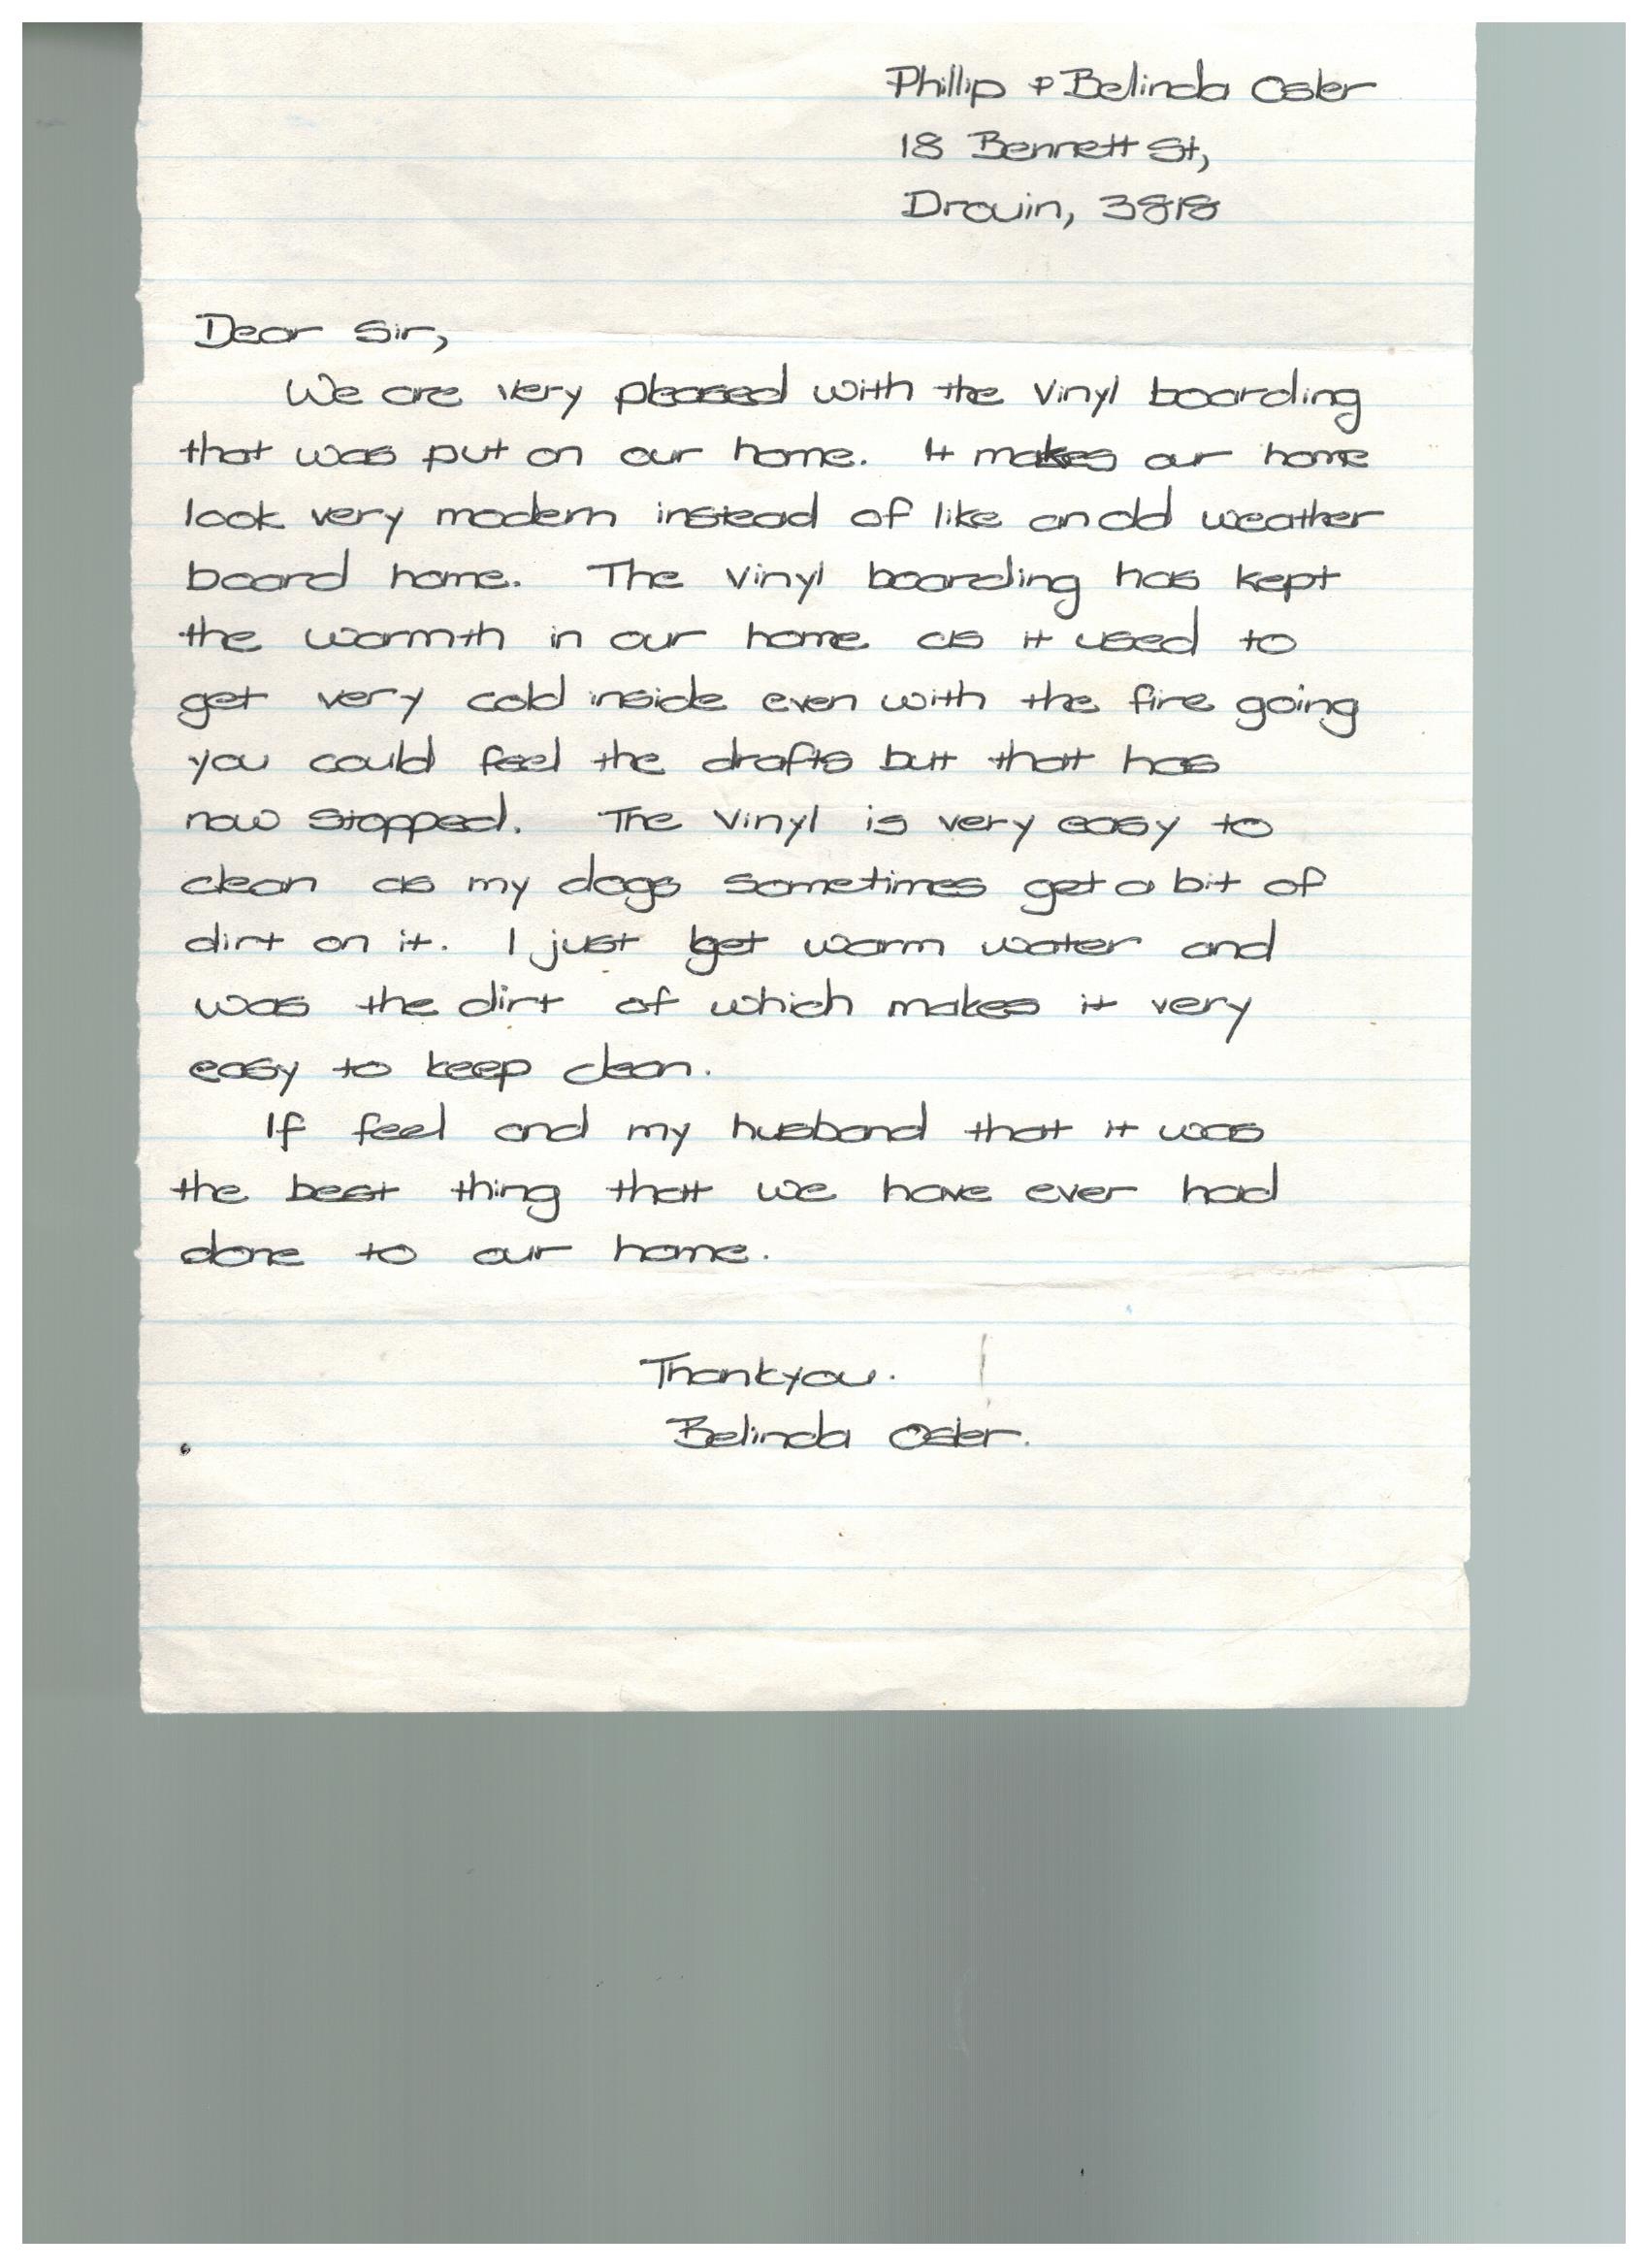 Phillip & Belinda Osler
18 Bennett St,
Drouin, 3818
Dear Sir,
We are very pleased with the vinyl boarding
that was put on our home. It makes our home
look very modern instead of like an old weather
board home. The vinyl boarding has kept
the warmth in our home as it used to
get very cold inside even with the fire going
you could feel the drafts but that has
now stopped. The vinyl is very easy to
clean as my dogs sometimes get a bit of
dirt on it. I just get warm water and
was the dirt of which makes it very
easy to keep clean.
If feel and my husband that it was
the best thing that we have ever had
done to our home.
Thankyou.
Belinda Osler.